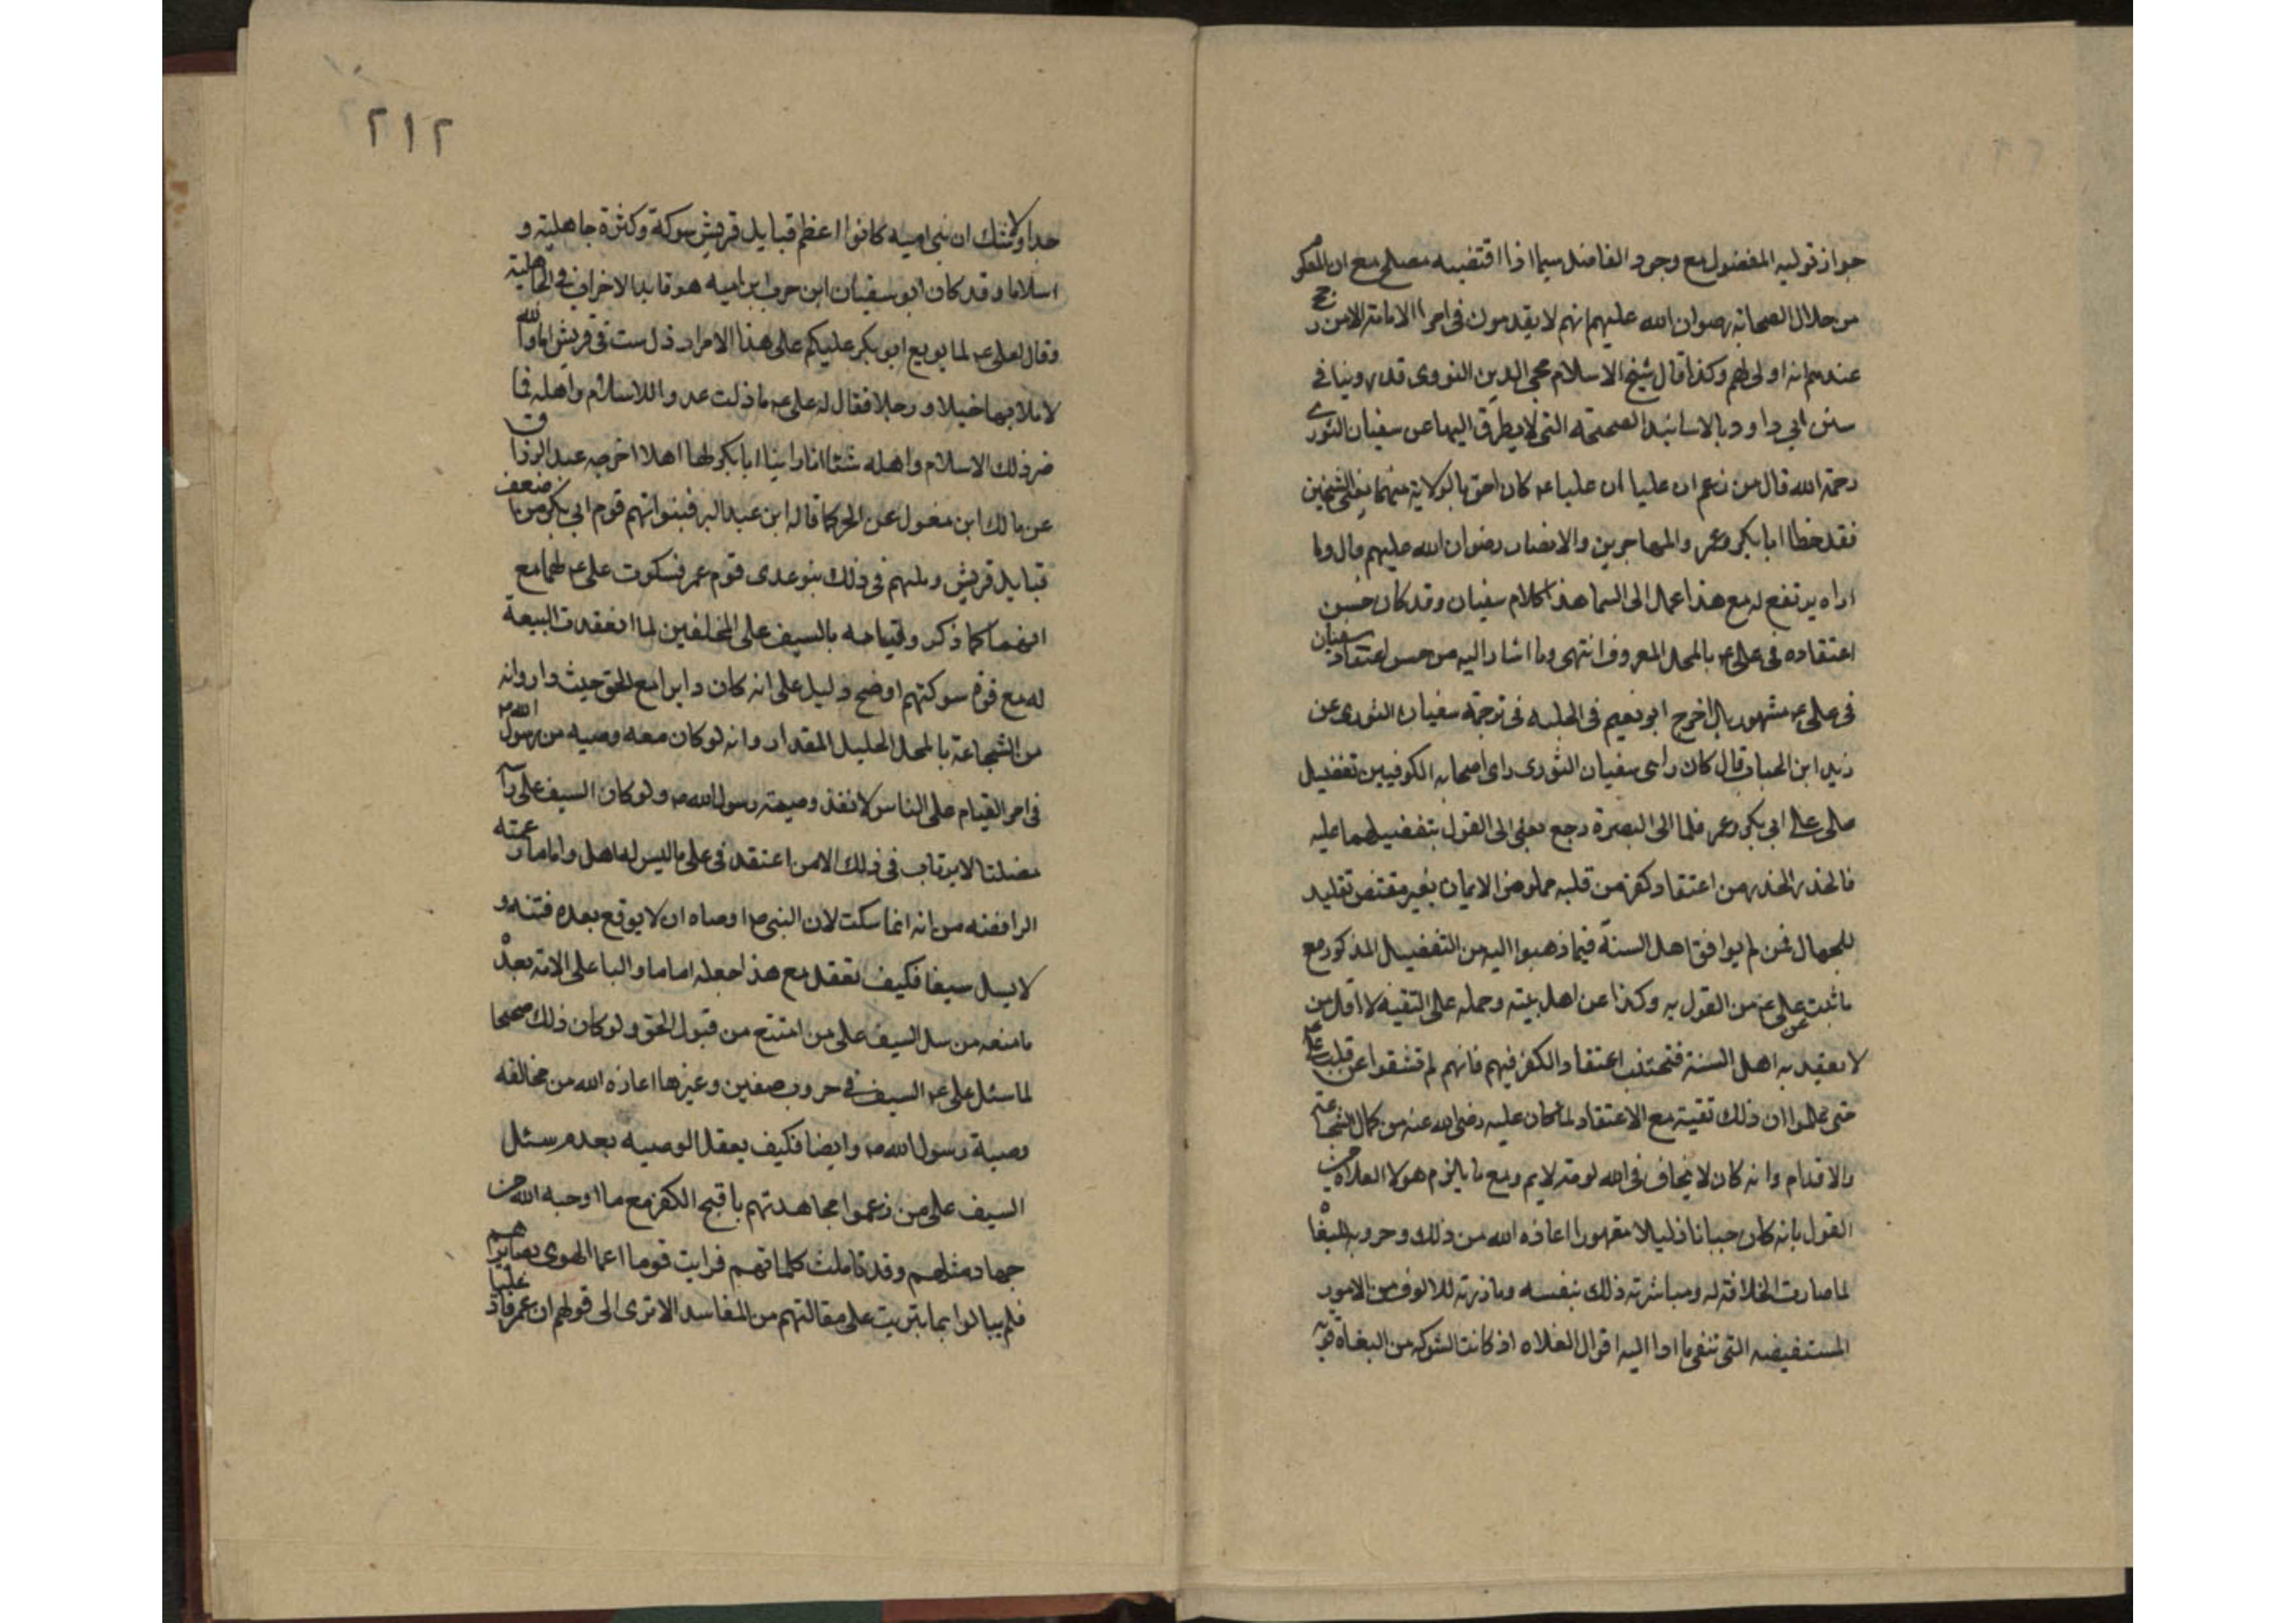 جواز تولية المفضول مع وجود الفاضل سيما اذا اقتضته مصلح مع ان المعلوم
من حلال الصحابة رضوان الله عليهم انهم لا يقدمون فى امر الامامة الا من
عندهم انه اولى لهم وكذا قال شيخ الاسلام محى الدين النووى قد روينا فى
سنن ابي داود بالاسانيد الصحيحة التى لا يطرق اليها عن سفيان الثورى
رحمة الله قال من زعم ان عليا ان عليا عم كان احق بالولاية منهما يعنى الشيخين
فقد خطا ابا بكر وعمر والمهاجرين والانصار رضوان الله عليهم قال وما
اراه يرتفع له مع هذا عمل الى السما هذا كلام سفيان وقد كان حسن
اعتقاده فى على عم بالمحل المعروف انتهى وما اشار اليه من حسن اعتقاد سفيان
فى على عم مشهور بل اخرج ابو نعيم فى الحليه فى ترجمة سفيان الثورى عن
زيد ابن الحباب قال كان راى سفيان الثورى راى اصحابه الكوفيين تفضيل
على على ابي بكر وعمر فلما الى البصرة رجع يعنى الى القول بتفضيلهما عليه
فالحذر الحذر من اعتقاد كفر من قلبه مملو من الايمان بغير مقتض تقليد
للجهال فمن لم يوافق اهل السنة فيما ذهبوا اليه من التفضيل المذكور مع
ما ثبت عن على عم من القول به وكذا عن اهل بيته وحمله على التقيه لا اقل من
لا يعتقد به اهل السنة فتجتنب اعتقاد الكفر فيهم فانهم لم تشقوا عن قلب على
حتى تعلموا ان ذلك تقية مع الاعتقاد لما كان عليه رضى الله عنه من كمال الشجاعة
والاقدام وانه كان لا يخاف فى الله لومة لايم ومع ما يلزم هولا الغلاه من
القول بانه كان جبانا ذليلا مقهورا اعاذه الله من ذلك وحروبه البغاة
لما صارت الخلافة له ومباشرته ذلك بنفسه ومبارزته للالوف من الامور
المستفيضه التى تنفى ما اوا اليه اقوال الغلاه اذ كانت الشوكه من البغاة قوية
٢١٢
جدا ولا شك ان بنى اميه كانوا اعظم قبايل قريش شوكة وكثرة جاهلية و
اسلاما وقد كان ابو سفيان ابن حرب ابن اميه هو قايد الاحزاب فى الجاهلية
وقال لعلى عم لما بويع ابو بكر عليكم على هذا الامر ارذل بيت فى قريش اما والله
لاملانها خيلا ورجلا فقال له على عم ما زلت عدوا للاسلام واهله فما
ضر ذلك الاسلام واهله شئا انا راينا ابا بكر لها اهلا اخرجه عبد الرزاق
عن مالك ابن مغول عن الحر كما قاله ابن عبد البر فبنوا تيم قوم ابي بكر من اضعف
قبايل قريش ومثلهم فى ذلك بنو عدى قوم عمر فسكوت على عم لهما مع
انهما كما ذكر وقيامه بالسيف على المخالفين لما انعقدت البيعة
له مع قوة شوكتهم اوضح دليل على انه كان دايرا مع الحق حيث دار وانه
من الشجاعة بالمحل الجليل المقدار وانه لو كان معه وصيه من رسول الله
فى امر القيام على الناس لانفذ وصيته رسول الله ص ولو كان السيف على راسه
مصلتا لا يرتاب فى ذلك الا من اعتقد فى على ما ليس له اهل واما ما زعمته
الرافضه من انه انما سكت لان النبى ص اوصاه ان لا يوقع بعده فتنه و
لا يسل سيفا فكيف تعقد مع هذا جعله اماما واليا على الامة بعده
ما منعه من سل السيف على من امتنع من قبول الحق ولو كان ذلك صحيحا
لما سئل على عم السيف فى حروب صفين وغيرها اعاذه الله من مخالفه
وصية رسول الله ص وايضا فكيف يعقل الوصيه بعدم سئل
السيف على من زعموا مجاهدتهم باقبح الكفر مع ما اوجبه الله من
جهاد مثلهم وقد تاملت كلماتهم فرايت قوما اعما الهوى بصايرهم
فلم يبالوا بما يترتب على مقالتهم من المفاسد الا ترى الى قولهم ان عمر قاد عليا